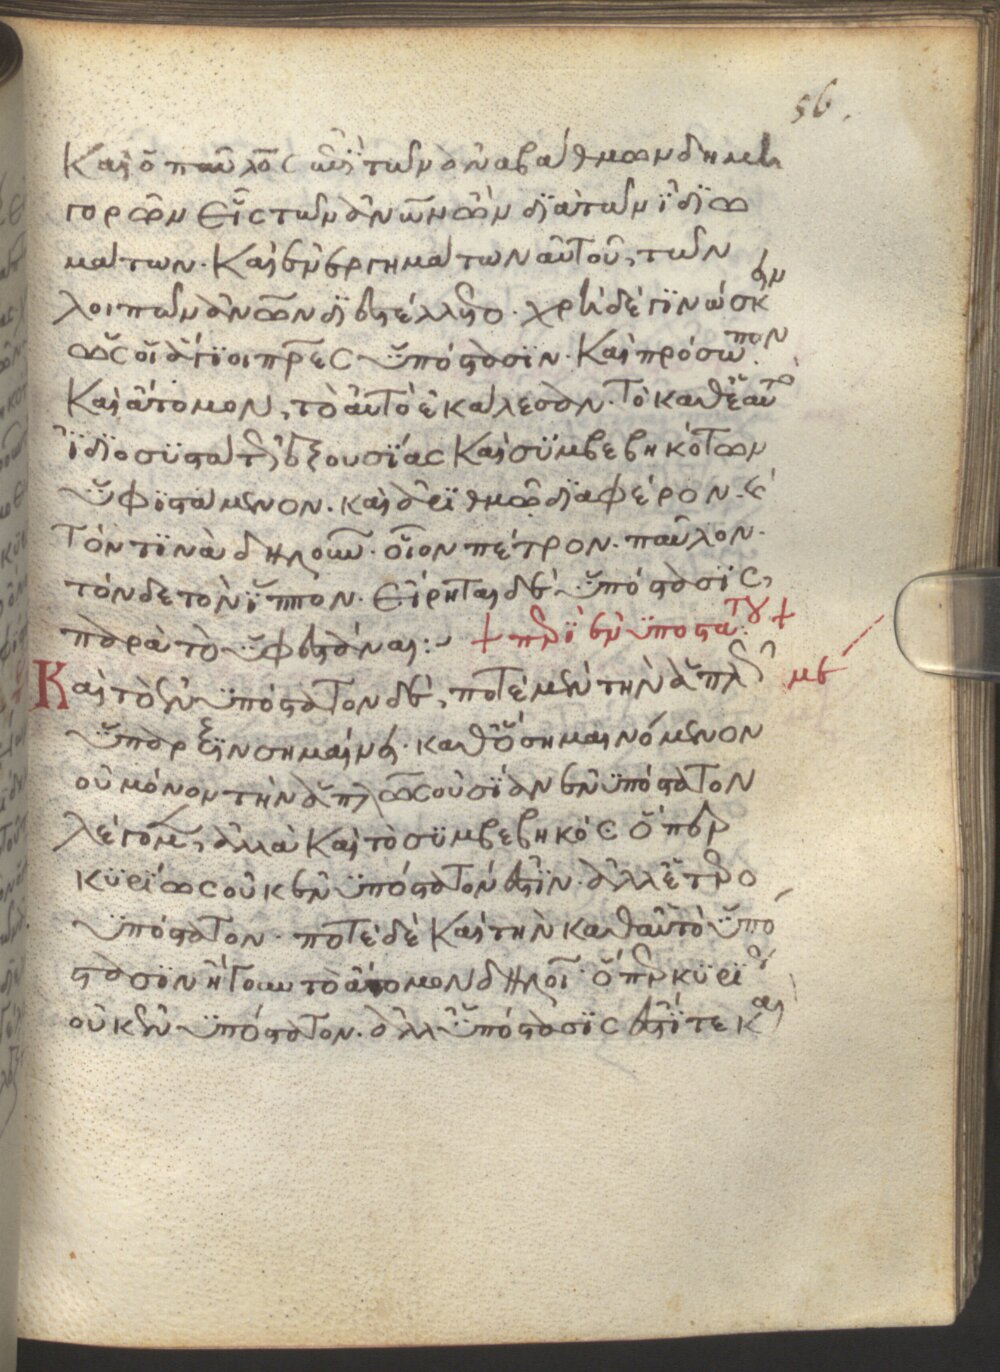 56.
Καὶ ὁ παῦλος ἐπὶ τῶν ἀναβαθμῶν δημη
γορῶν εἷς τῶν ἀνων ὢν διὰ τῶν ἰδιω
μάτων. Καὶ ἐνεργημάτων αὐτοῦ, τῶν
λοιπῶν ἀνων διεστέλλετο. χρὴ δὲ γινώσκειν
ὡς οἱ ἅγιοι πρες ὑπόστασιν. Καὶ πρόσωπον.
Καὶ ἄτομον, τὸ αὐτὸ ἐκάλεσαν. Τὸ καθ' ἑαυτὸ
ἰδιοσυστάτως ἐξ οὐσίας Καὶ συμβεβηκότων
ὑφιστάμενον. καὶ ἀριθμῶ διαφέρον. καὶ
τόν τινα δηλοῦν. οἷον πέτρον. παῦλον.
τόνδε τὸν ἵππον. Εἴρηται δὲ ὑπόστασις,
παρὰ τὸ ὑφεστάναι: + περὶ ἐνυποστάτου: +
Καὶ τὸ ἐνυπόστατον δὲ, ποτὲ μὲν τὴν ἁπλῶς με
ὕπαρξιν σημαίνει. καθ' ὃ σημαινόμενον
οὐ μόνον τὴν ἁπλῶς οὐσίαν ἐνυπόστατον
λέγομεν, ἀλλὰ Καὶ τὸ συμβεβηκός ὅπερ
κυρίως οὐκ ἐνυπόστατόν ἐστιν. ἀλλ' ἑτερο
ϋπόστατον. ποτὲ δὲ Καὶ τὴν καθ' αὑτὸ ὑπό
στασιν ἤτουν τὸ ἄτομον δηλοῖ. ὅπερ κυρίως
οὐκ ἐνυπόστατον. ἀλλ' ὑπόστασις ἐστί τε καὶ